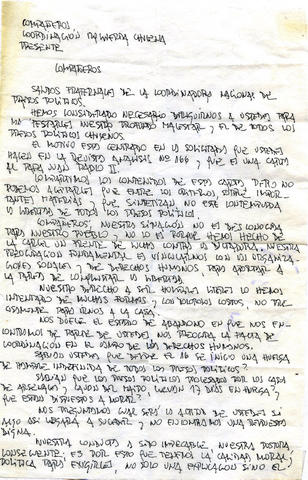 COMPAÑEROS
COORDINACION IZQUIERDA CHILENA
PRESENTE
COMPAÑEROS
SALUDOS FRATERNALES DE LA COORDINADORA NACIONAL DE
PRESOS POLITICOS.
HEMOS CONSIDERADO NECESARIO DIRIGIRNOS A USTEDES PARA
MANIFESTARLES NUESTRO PROFUNDO MALESTAR Y EL DE TODOS LOS
PRESOS POLITICOS CHILENOS.
EL MOTIVO ESTA CENTRADO EN LA SOLICITADA QUE USTEDES
HACEN EN LA REVISTA ANALISIS Nº 166, QUE ES UNA CARTA
AL PAPA JUAN PABLO II.
COMPARTIMOS LOS CONTENIDOS DE ESTA CARTA, PERO NO
PODEMOS ACEPTAR QUE ENTRE LOS CRITERIOS IMPOR-
TANTES QUE SINTETIZAN NO ESTE CONTENIDA
LA LIBERTAD DE TODOS LOS PRESOS POLITICOS.
COMPAÑEROS, NUESTRA SITUACION NO ES DESCONOCIDA
PARA NUESTRO PUEBLO NO LO ES PORQUE HEMOS HECHO DE
LA CARCEL UN FRENTE DE LUCHA CONTRA LA DICTADURA, NUESTRA
PREOCUPACION FUNDAMENTAL ES VINCULARNOS CON LAS ORGANIZA-
CIONES SOCIALES Y DE DERECHOS HUMANOS PARA APORTAR A
LA TAREA DE CONQUISTAR LA LIBERTAD.
NUESTRO DERECHO A SER HOMBRES LIBRES LO HEMOS
INTENTADO DE MUCHAS FORMAS, CON DOLOROSOS COSTOS, NO PRE-
CISAMENTE PARA IRNOS A LA CASA.
NOS DUELE EL ESTADO DE ABANDONO EN QUE NOS EN-
CONTRAMOS DE PARTE DE USTEDES, NOS PREOCUPA LA FALTA DE
COORDINACION EN EL CAMPO DE LOS DERECHOS HUMANOS.
SABIAN USTEDES QUE DESDE EL 16 SE INICIO UNA HUELGA
DE HAMBRE INDEFINIDA DE TODOS LOS PRESOS POLITICOS?
SABIAN QUE LOS PRESOS POLITICOS PROCESADOS POR LOS CASOS DE
ARSENALES Y CAIDA DEL LLEVAN 13 DIAS EN HUELGA Y
QUE ESTAN DISPUESTOS A MORIR?
NOS PREGUNTAMOS CUAL SERA LA ACTITUD DE USTEDES SI
ALGO ASI LLEGARA A SUCEDER, Y NO ENCONTRAMOS UNA RESPUESTA
DIGNA.
NUESTRA CONDUCTA A SIDO IMPECABLE, NUESTRA POSTURA
CONSECUENTE; ES POR ESTO QUE TENEMOS LA CALIDAD MORAL Y
POLITICA PARA EXIGIRLES, NO SOLO UNA EXPLICACION SINO EL